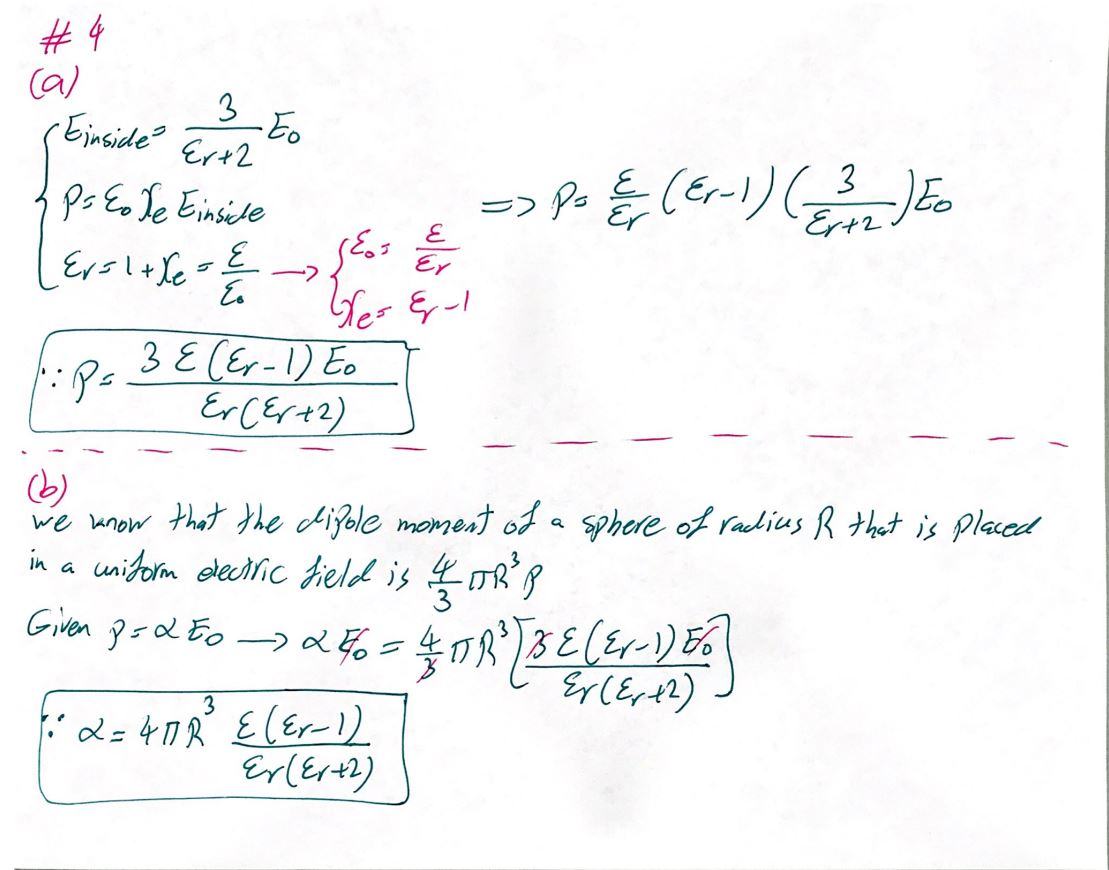 # 4
(a)
E inside = 3/(εr+2) E₀
P = ε₀ χe E inside
εr = 1 + χe = ε/ε₀ → { ε₀ = ε/εr
χe = εr - 1
=> P = ε/εr (εr-1) (3/(εr+2)) E₀
∵ P = 3 ε (εr-1) E₀ / εr(εr+2)
(b)
we know that the dipole moment of a sphere of radius R that is placed
in a uniform electric field is 4/3 πR³ P
Given p = α E₀ → α E₀ = 4/3 πR³ [3 ε (εr-1) E₀ / εr(εr+2)]
∵ α = 4πR³ ε(εr-1) / εr(εr+2)